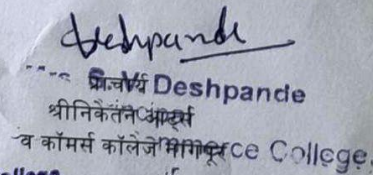 Deshpande
Deshpande
श्रीनिकेतन आर्ट्स
व कॉमर्स कॉलेज नागपूर ce College